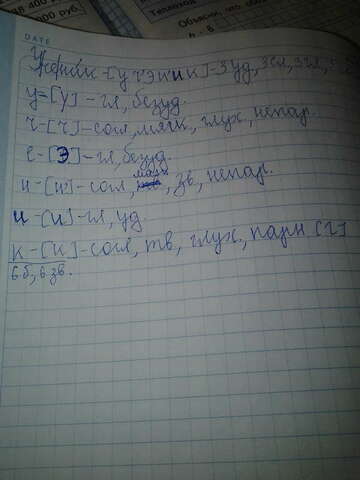 98 400
000 руб.
Теплоход
Объясни, что об
DATE
Ученик - [учэник] - 3 уд, 3 сл, 3 гл,
у = [у] - гл, безуд.
ч - [ч] - согл, мягк, глух, непар.
е - [э] - гл, безуд.
н - [н'] - согл, мягк, зв, непар.
и - [и] - гл, уд.
к - [к] - согл, тв, глух, парн [г]
6 б, 6 зв.